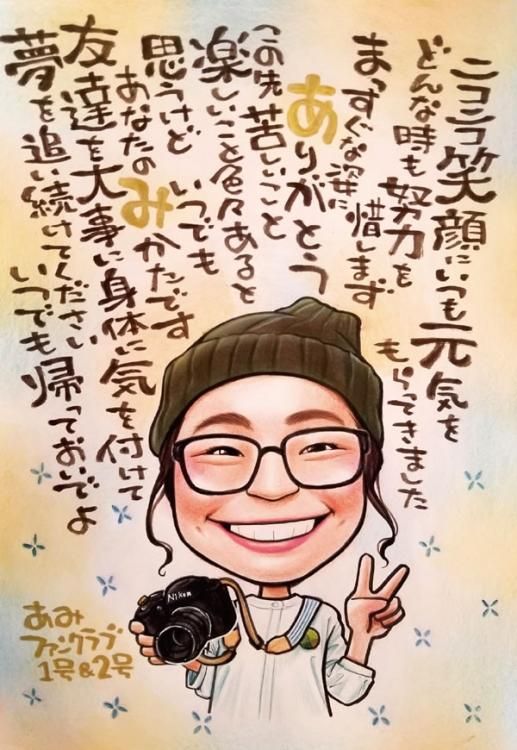 ニコニコ笑顔にいつも元気を
もらってきました
どんな時も努力を
惜しまず
まっすぐな姿に
ありがとう
この先苦しいこと
楽しいこと色々あると
思うけど いつでも
あなたの みかたです
友達を大事に身体に気を付けて
夢を追い続けてください
いつでも帰っておいでよ
Nikon
あみ
ファンクラブ
1号&2号